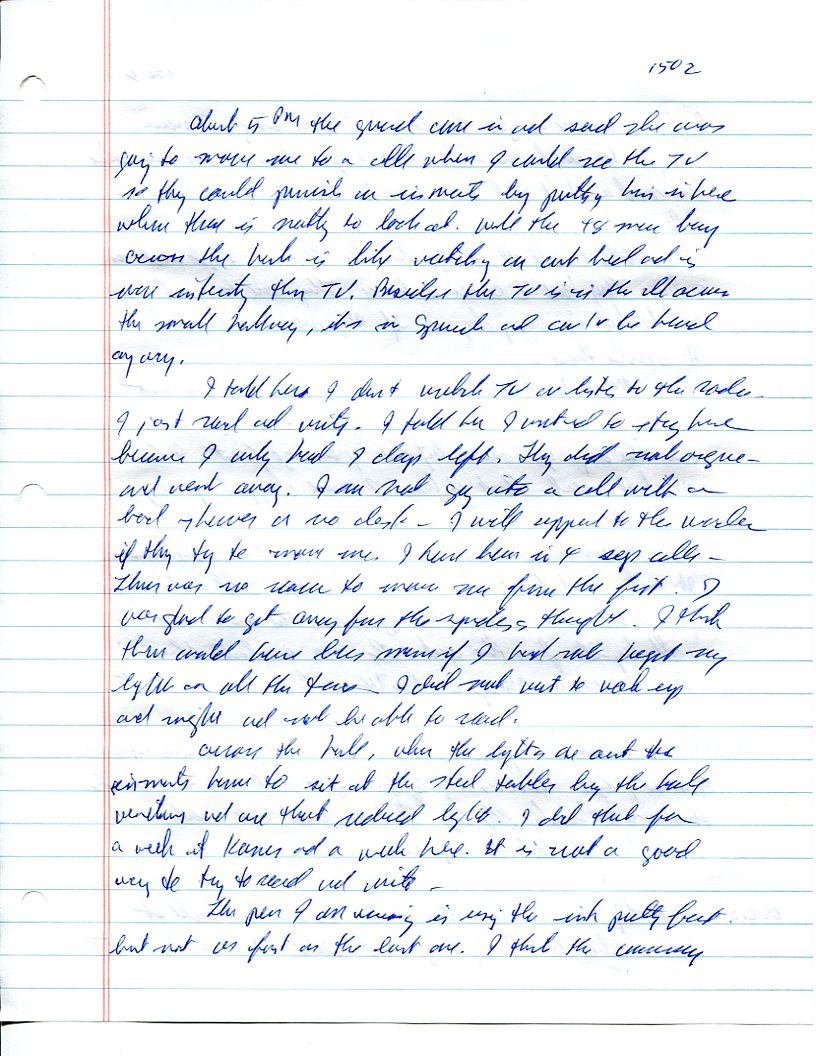 1502
About 5 PM the guard came in and said she was
going to move me to a cell where I could see the TV
so they could punish an inmate by putting him in here
where there is nothing to look at. well the 48 man
across the hall is like watching an ant bed and is
more interesting than TV. Besides the TV is in the across
the small hallway, its in Spanish and can't be heard
anyway.
I told her I don't watch TV or listen to the radio
I just read and write. I told her I wanted to stay here
because I only had days left. They did not argue -
and went away. I am not going into a cell with a
bad shower or no desk - I will appeal to the warden
if they try to move me. I have been in 4 sep cells -
There was no reason to move me from the first. I
was glad to get away from the spiders thought. I think
there would have been more if I had not kept my
light on all the time I did not want to wake up
and night and not be able to read.
across the hall, when the lights are out the
inmates have to sit at the steel tables by the hall
windows and use that reduced light. I did that for
a week at and a week here. It is not a good
way to try to read and write -
The pen I am using is using the ink pretty fast.
but not as fast as the last one. I think the